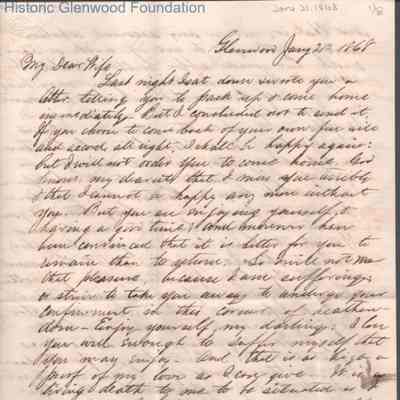 Historic Glenwood Foundation
Jany 21, 1868
1/8
Glenwood Jany 21st 1868
My Dear Wife
Last night I sat down & wrote you a
letter telling you to pack up & come home
immediately. But I concluded not to send it.
If you choose to come back of your own free will
and accord all right, I shall be happy again:
but I will not order you to come home. God
knows my dear wife that I miss you terribly
& that I cannot be happy any more without
you. But you are enjoying yourself, &
having a good time; and moreover have
been convinced that it is better for you to
remain than to return. So I will not mar
that pleasure because I am suffering;
or strive to take you away to undergo your
confinement in this corner of
down. Enjoy yourself my darling; I love
you well enough to suffer myself that
you may enjoy. And that is as high a
proof of my love as I can give. It is a
living death to me to be situated as